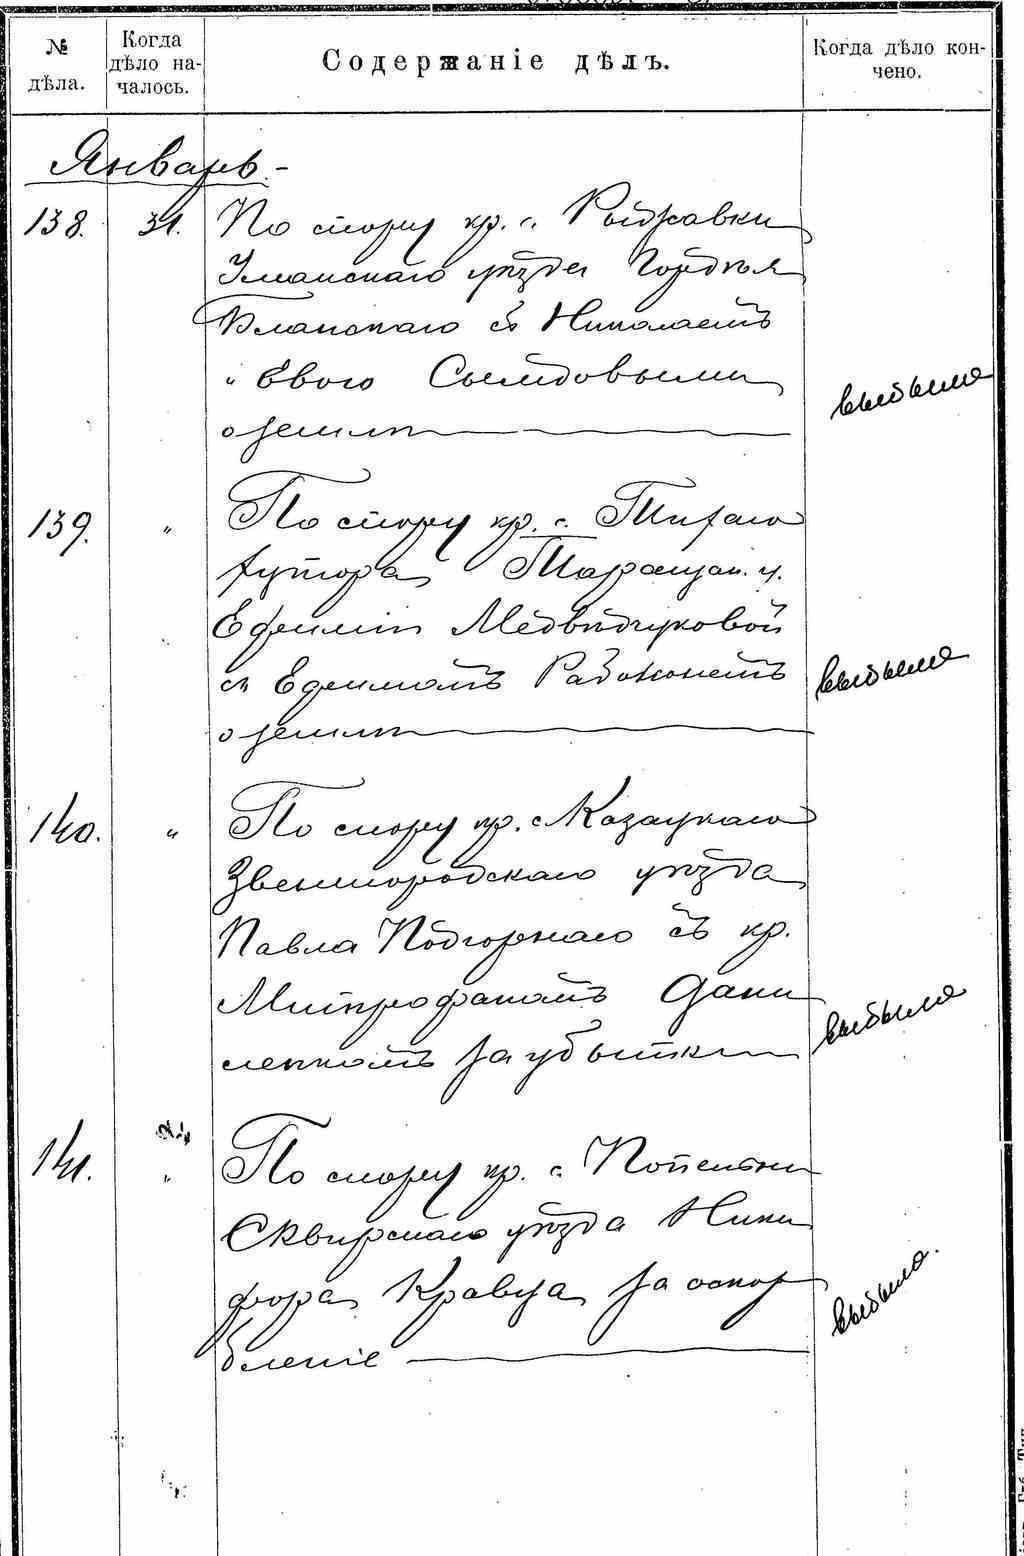 № дѣла.
Когда дѣло на-
чалось.
Содержаніе дѣлъ.
Когда дѣло кон-
чено.
Январь.-
138. 31. По спору кр. с. Рыжавки
Уманскаго уѣзда Гордѣя
Бланскаго съ Николаемъ
и Евою
о землѣ
выбыло
139. " По спору кр. с. Тихаго
хутора Таращан. у.
Ефиміи Медвѣдчуковой
съ Ефимомъ Рабоконемъ
о землѣ
выбыло
140. " По спору кр. с. Казацкаго
Звенигородскаго уѣзда
Павла Подгорнаго съ кр.
Митрофаномъ Дани
ленкомъ за убытки
выбыло
141. " По спору кр. с. Попельни
Сквирскаго уѣзда Ники
фора Кравца за оскор
бленіе
выбыло.